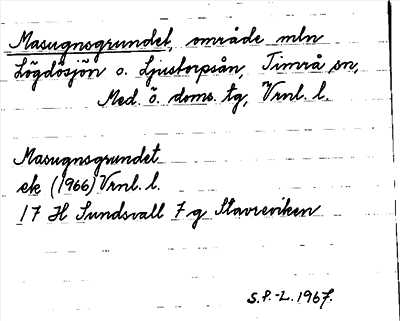 Masugnsgrundet, område mln
Lögdösjön o. Ljustorpsån, Timrå sn,
Med. ö. doms. tg, Vrnl. l.
Masugnsgrundet
ek (1966) Vrnl. l.
17 H Sundsvall 7 g Stavreviken
S.P.-L. 1967.